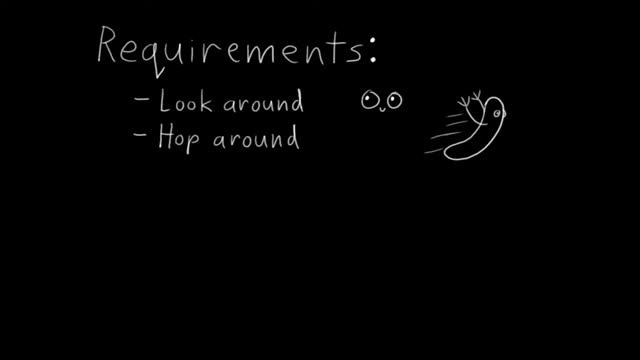 Requirements:
- Look around
- Hop around